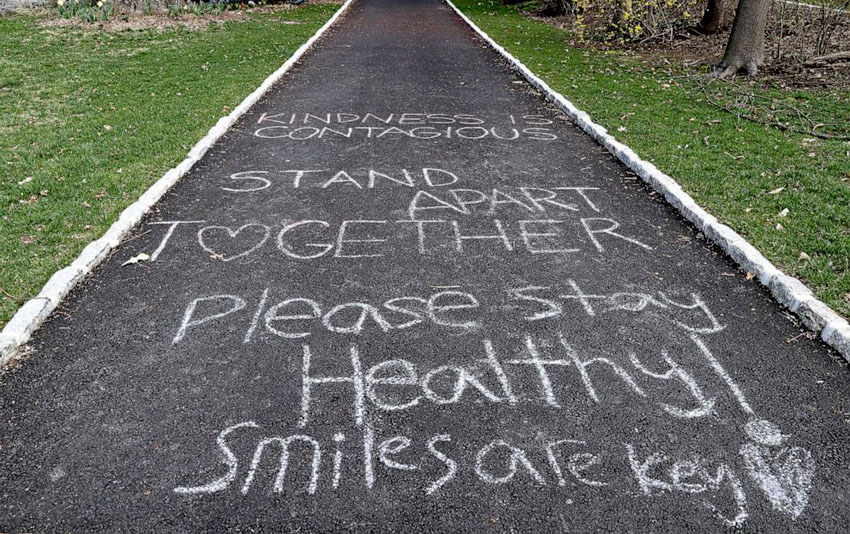 KINDNESS IS
CONTAGIOUS
STAND APART
T♡GETHER
Please stay
Healthy!
Smiles are key